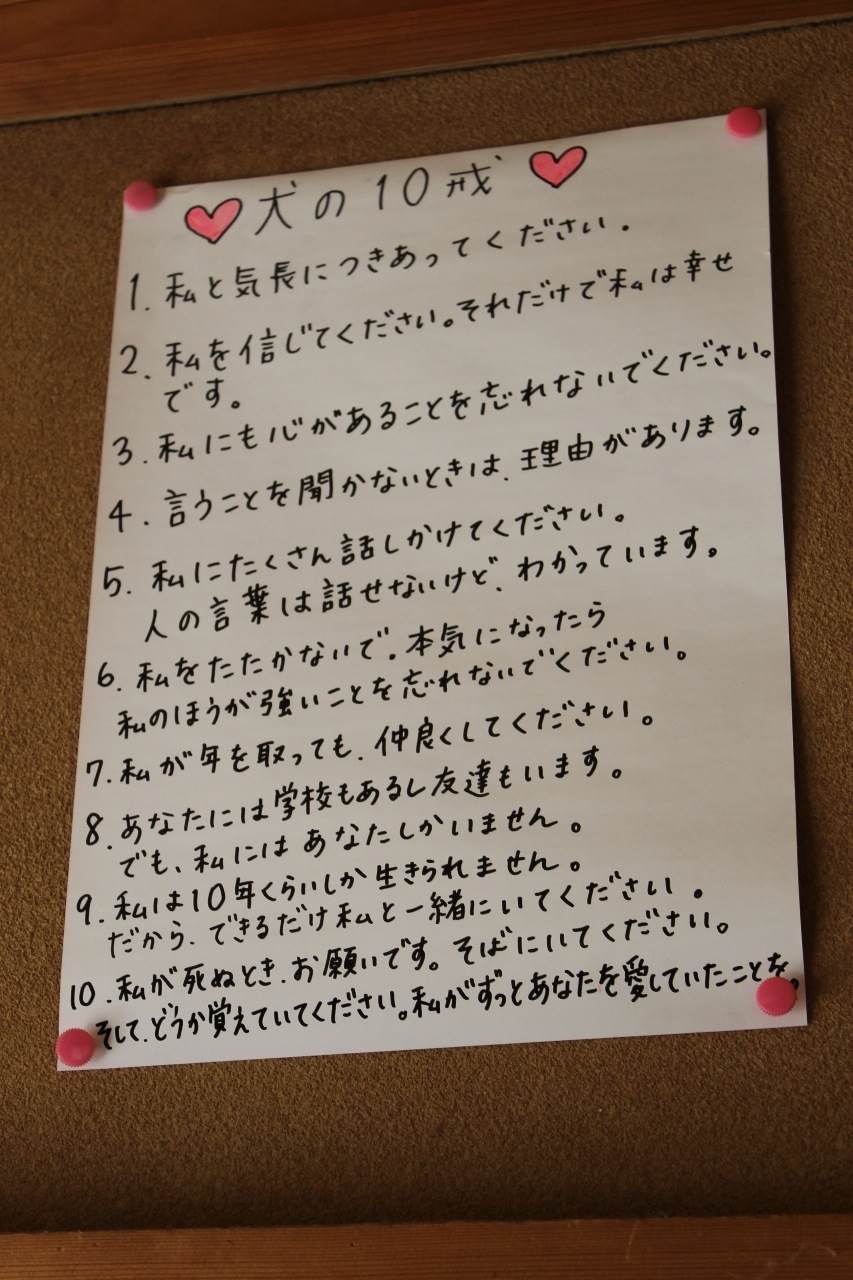 犬の10戒
1. 私と気長につきあってください。
2. 私を信じてください。それだけで私は幸せ
です。
3. 私にも心があることを忘れないでください。
4. 言うことを聞かないときは、理由があります。
5. 私にたくさん話しかけてください。
人の言葉は話せないけど、わかっています。
6. 私をたたかないで。本気になったら
私のほうが強いことを忘れないでください。
7. 私が年を取っても、仲良くしてください。
8. あなたには学校もあるし友達もいます。
でも、私にはあなたしかいません。
9. 私は10年くらいしか生きられません。
だから、できるだけ私と一緒にいてください。
10. 私が死ぬとき、お願いです。そばにいてください。
そして、どうか覚えていてください。私がずっとあなたを愛していたことを。